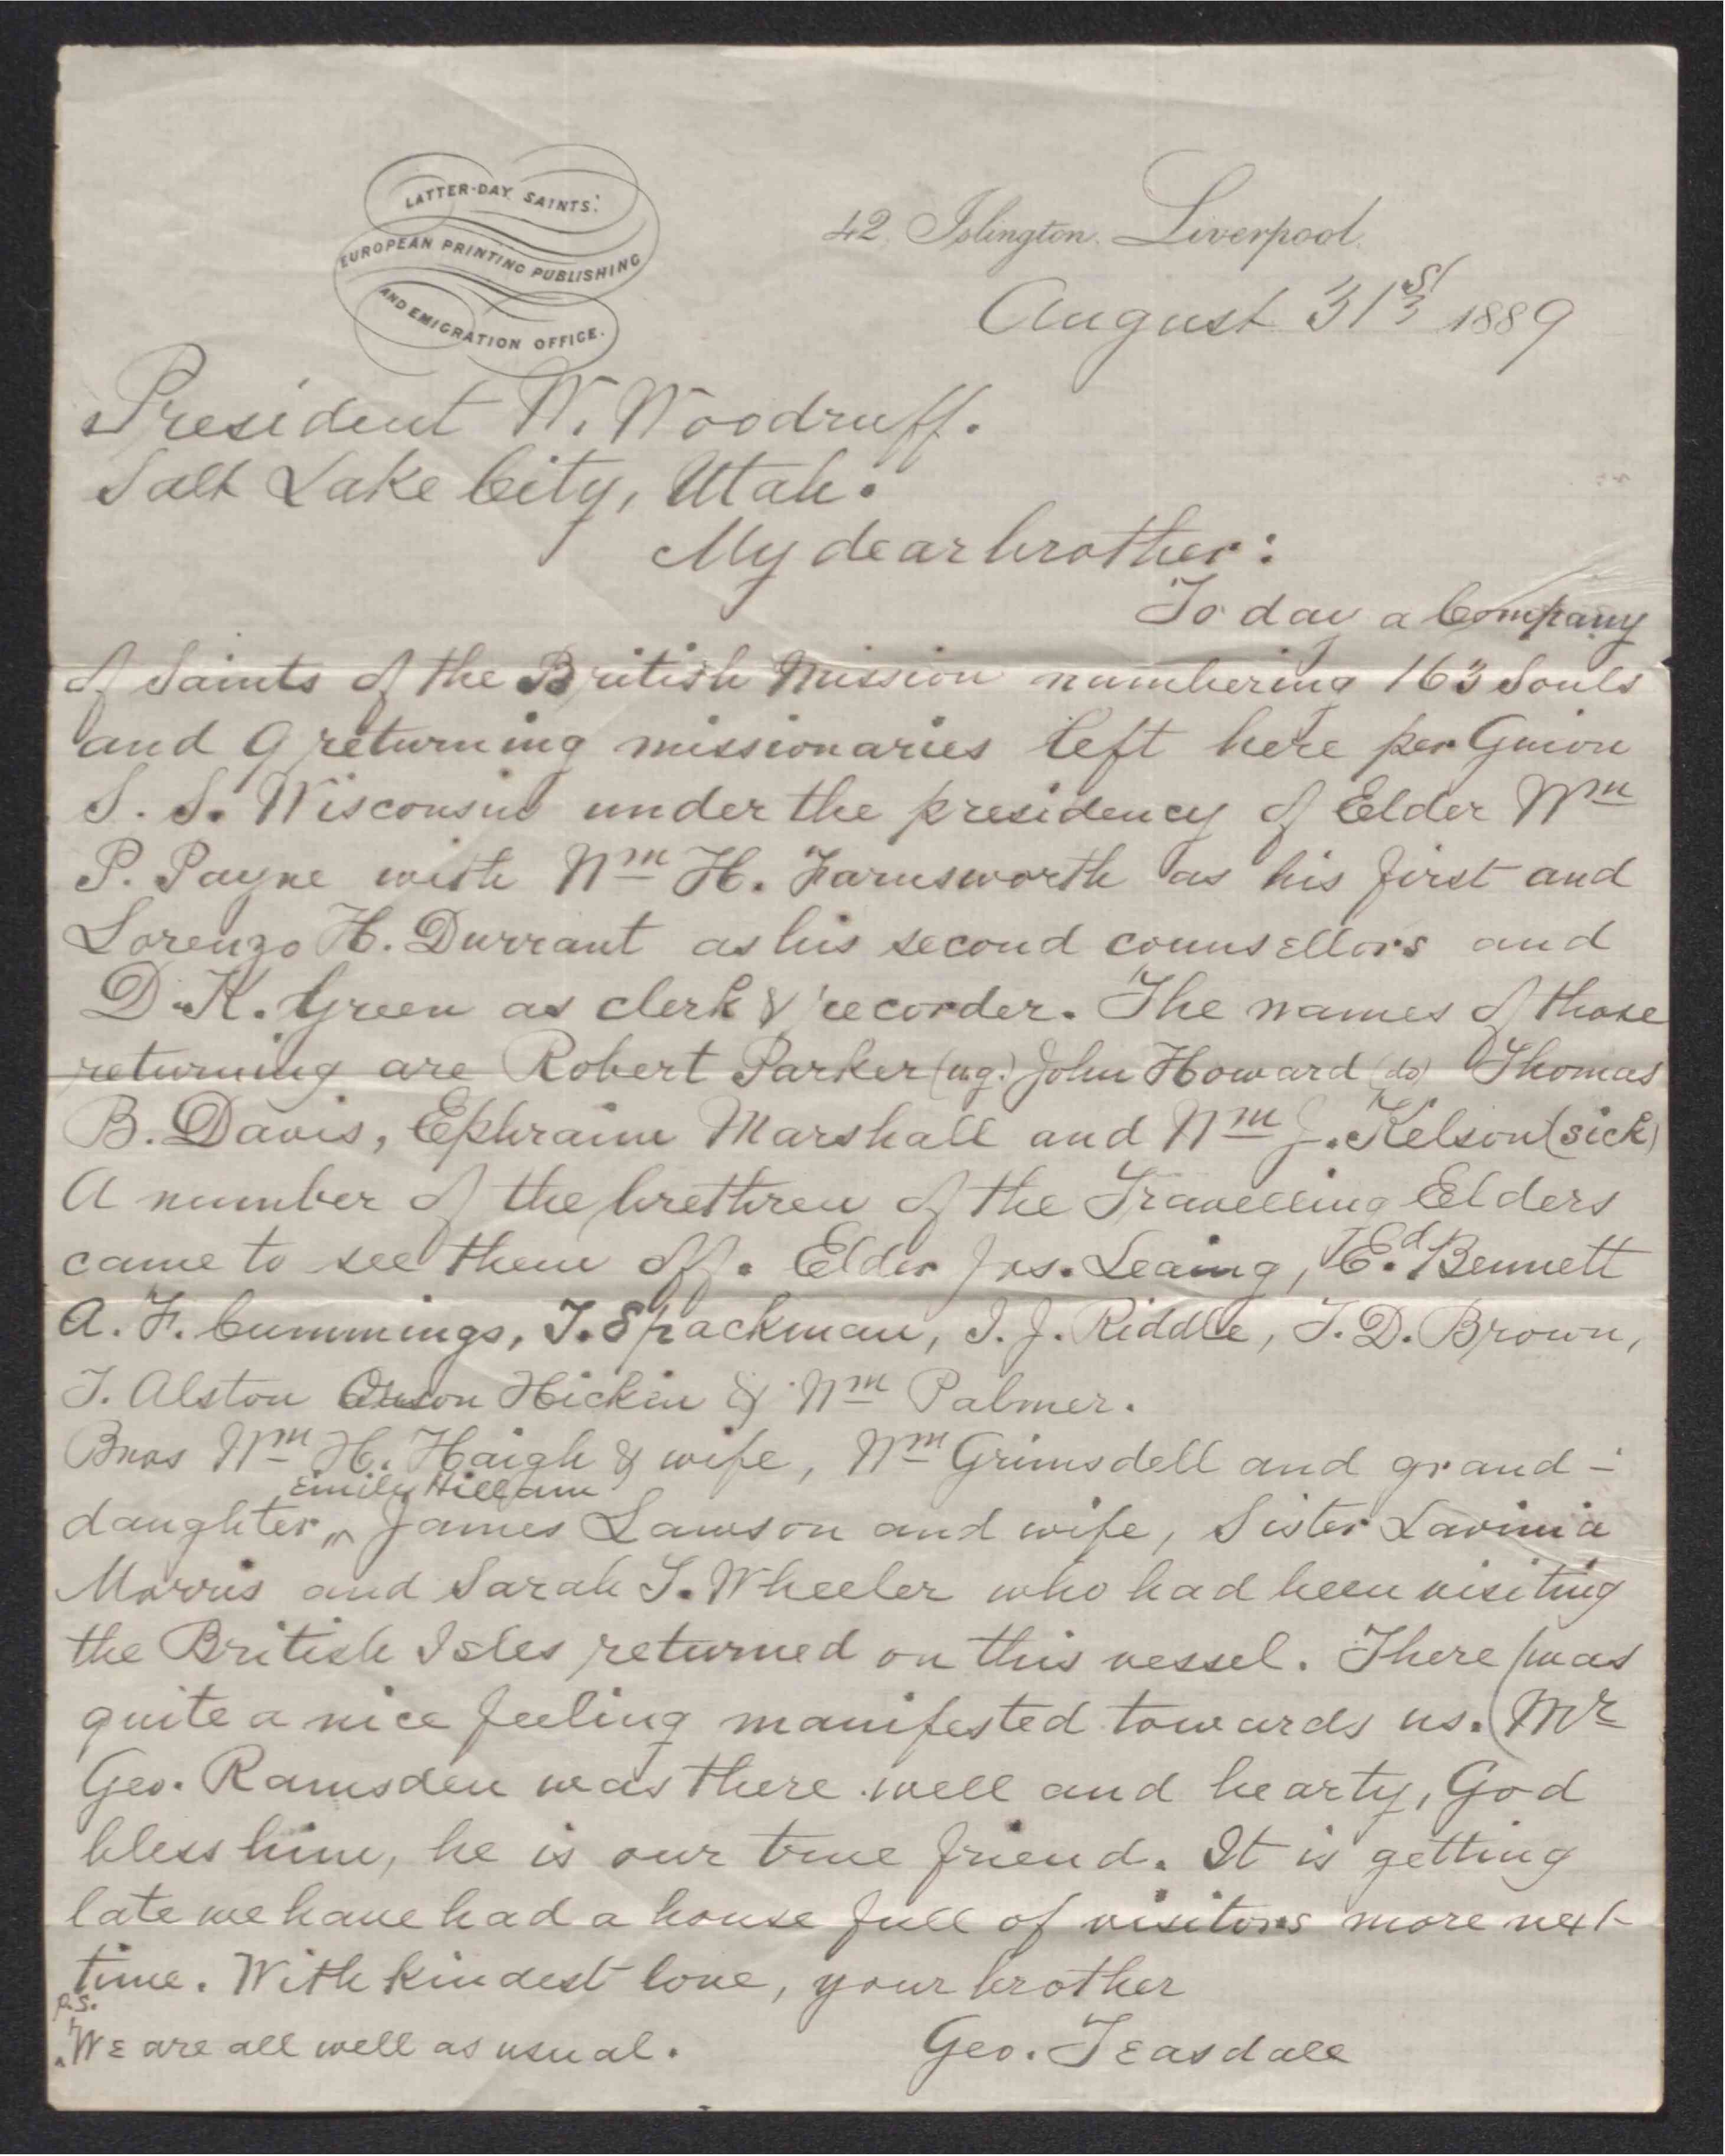 LATTER-DAY SAINTS'
EUROPEAN PRINTING PUBLISHING
AND EMIGRATION OFFICE.
42, Islington, Liverpool,
August 31st 1889
President W. Woodruff.
Salt Lake City, Utah.
My dear brother:
To day a Company
of Saints of the British Mission numbering 163 Souls
and 9 returning missionaries left here per Guion
S. S. Wisconsin under the presidency of Elder Wm
P. Payne with Wm H. Farnsworth as his first and
Lorenzo H. Durrant as his second counsellors and
D. K. Green as clerk & recorder. The names of those
returning are Robert Parker (ag.) John Howard (do) Thomas
B. Davis, Ephraim Marshall and Wm J. Kelson (sick)
A number of the brethren of the Travelling Elders
came to see them off. Elder Jos. Leaing, Ed. Bennett
A. F. Cummings, T. Spackman, I. J. Riddle, T. D. Brown,
T. Alston Orson Hickin & Wm Palmer.
Bros Wm H. Haigh & wife, Wm Grimsdell and grand-
Emily Hillam
daughter, James Lawson and wife, Sister Lavinia
Morris and Sarah S. Wheeler who had been visiting
the British Isles returned on this vessel. There was
quite a nice feeling manifested towards us. Mr
Geo. Ramsden was there well and hearty, God
bless him, he is our true friend. It is getting
late we have had a house full of visitors more next
time. With kindest love, your brother
P.S.
We are all well as usual. Geo. Teasdale